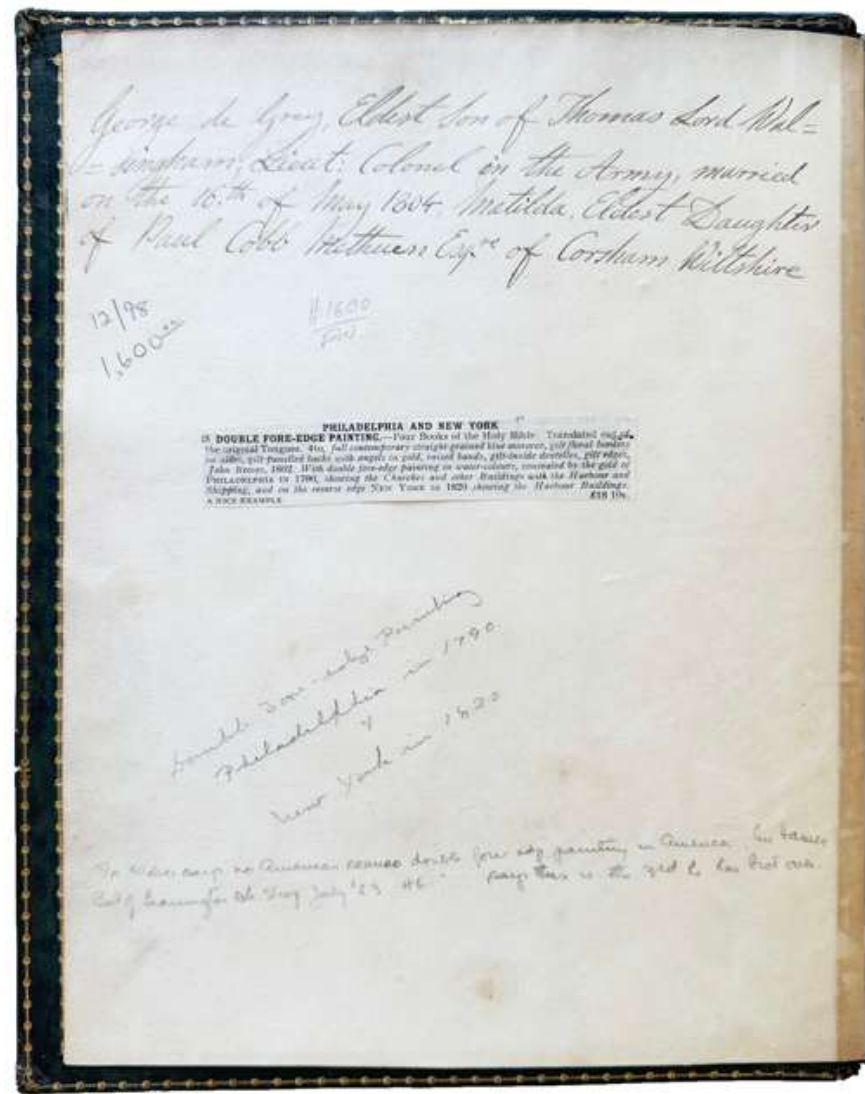 George de Grey, Eldest Son of Thomas Lord Wal=
=singham, Lieut: Colonel in the Army, married
on the 16.th of May 1804, Matilda, Eldest Daughter
of Paul Cobb Methuen Esqre of Corsham Wiltshire
12/98
1,600.00
#1600
PHILADELPHIA AND NEW YORK
DOUBLE FORE-EDGE PAINTING.—Four Books of the Holy Bible. Translated out of
the original Tongues. 4to, full contemporary straight-grained blue morocco, gilt floral borders
on sides, gilt panelled backs with angels in gold, raised bands, gilt-inside dentelles, gilt edges,
John Reeves, 1802. With double fore-edge painting in water-colours, concealed by the gold of
PHILADELPHIA IN 1790, showing the Churches and other Buildings with the Harbour and
Shipping, and on the reverse edge NEW YORK in 1820 showing the Harbour Buildings.
A NICE EXAMPLE £18 10s.
Double Fore-edge Painting
Philadelphia in 1790
&
New York in 1820
no American double fore edge painting in America
July says this is the 3rd he has had over